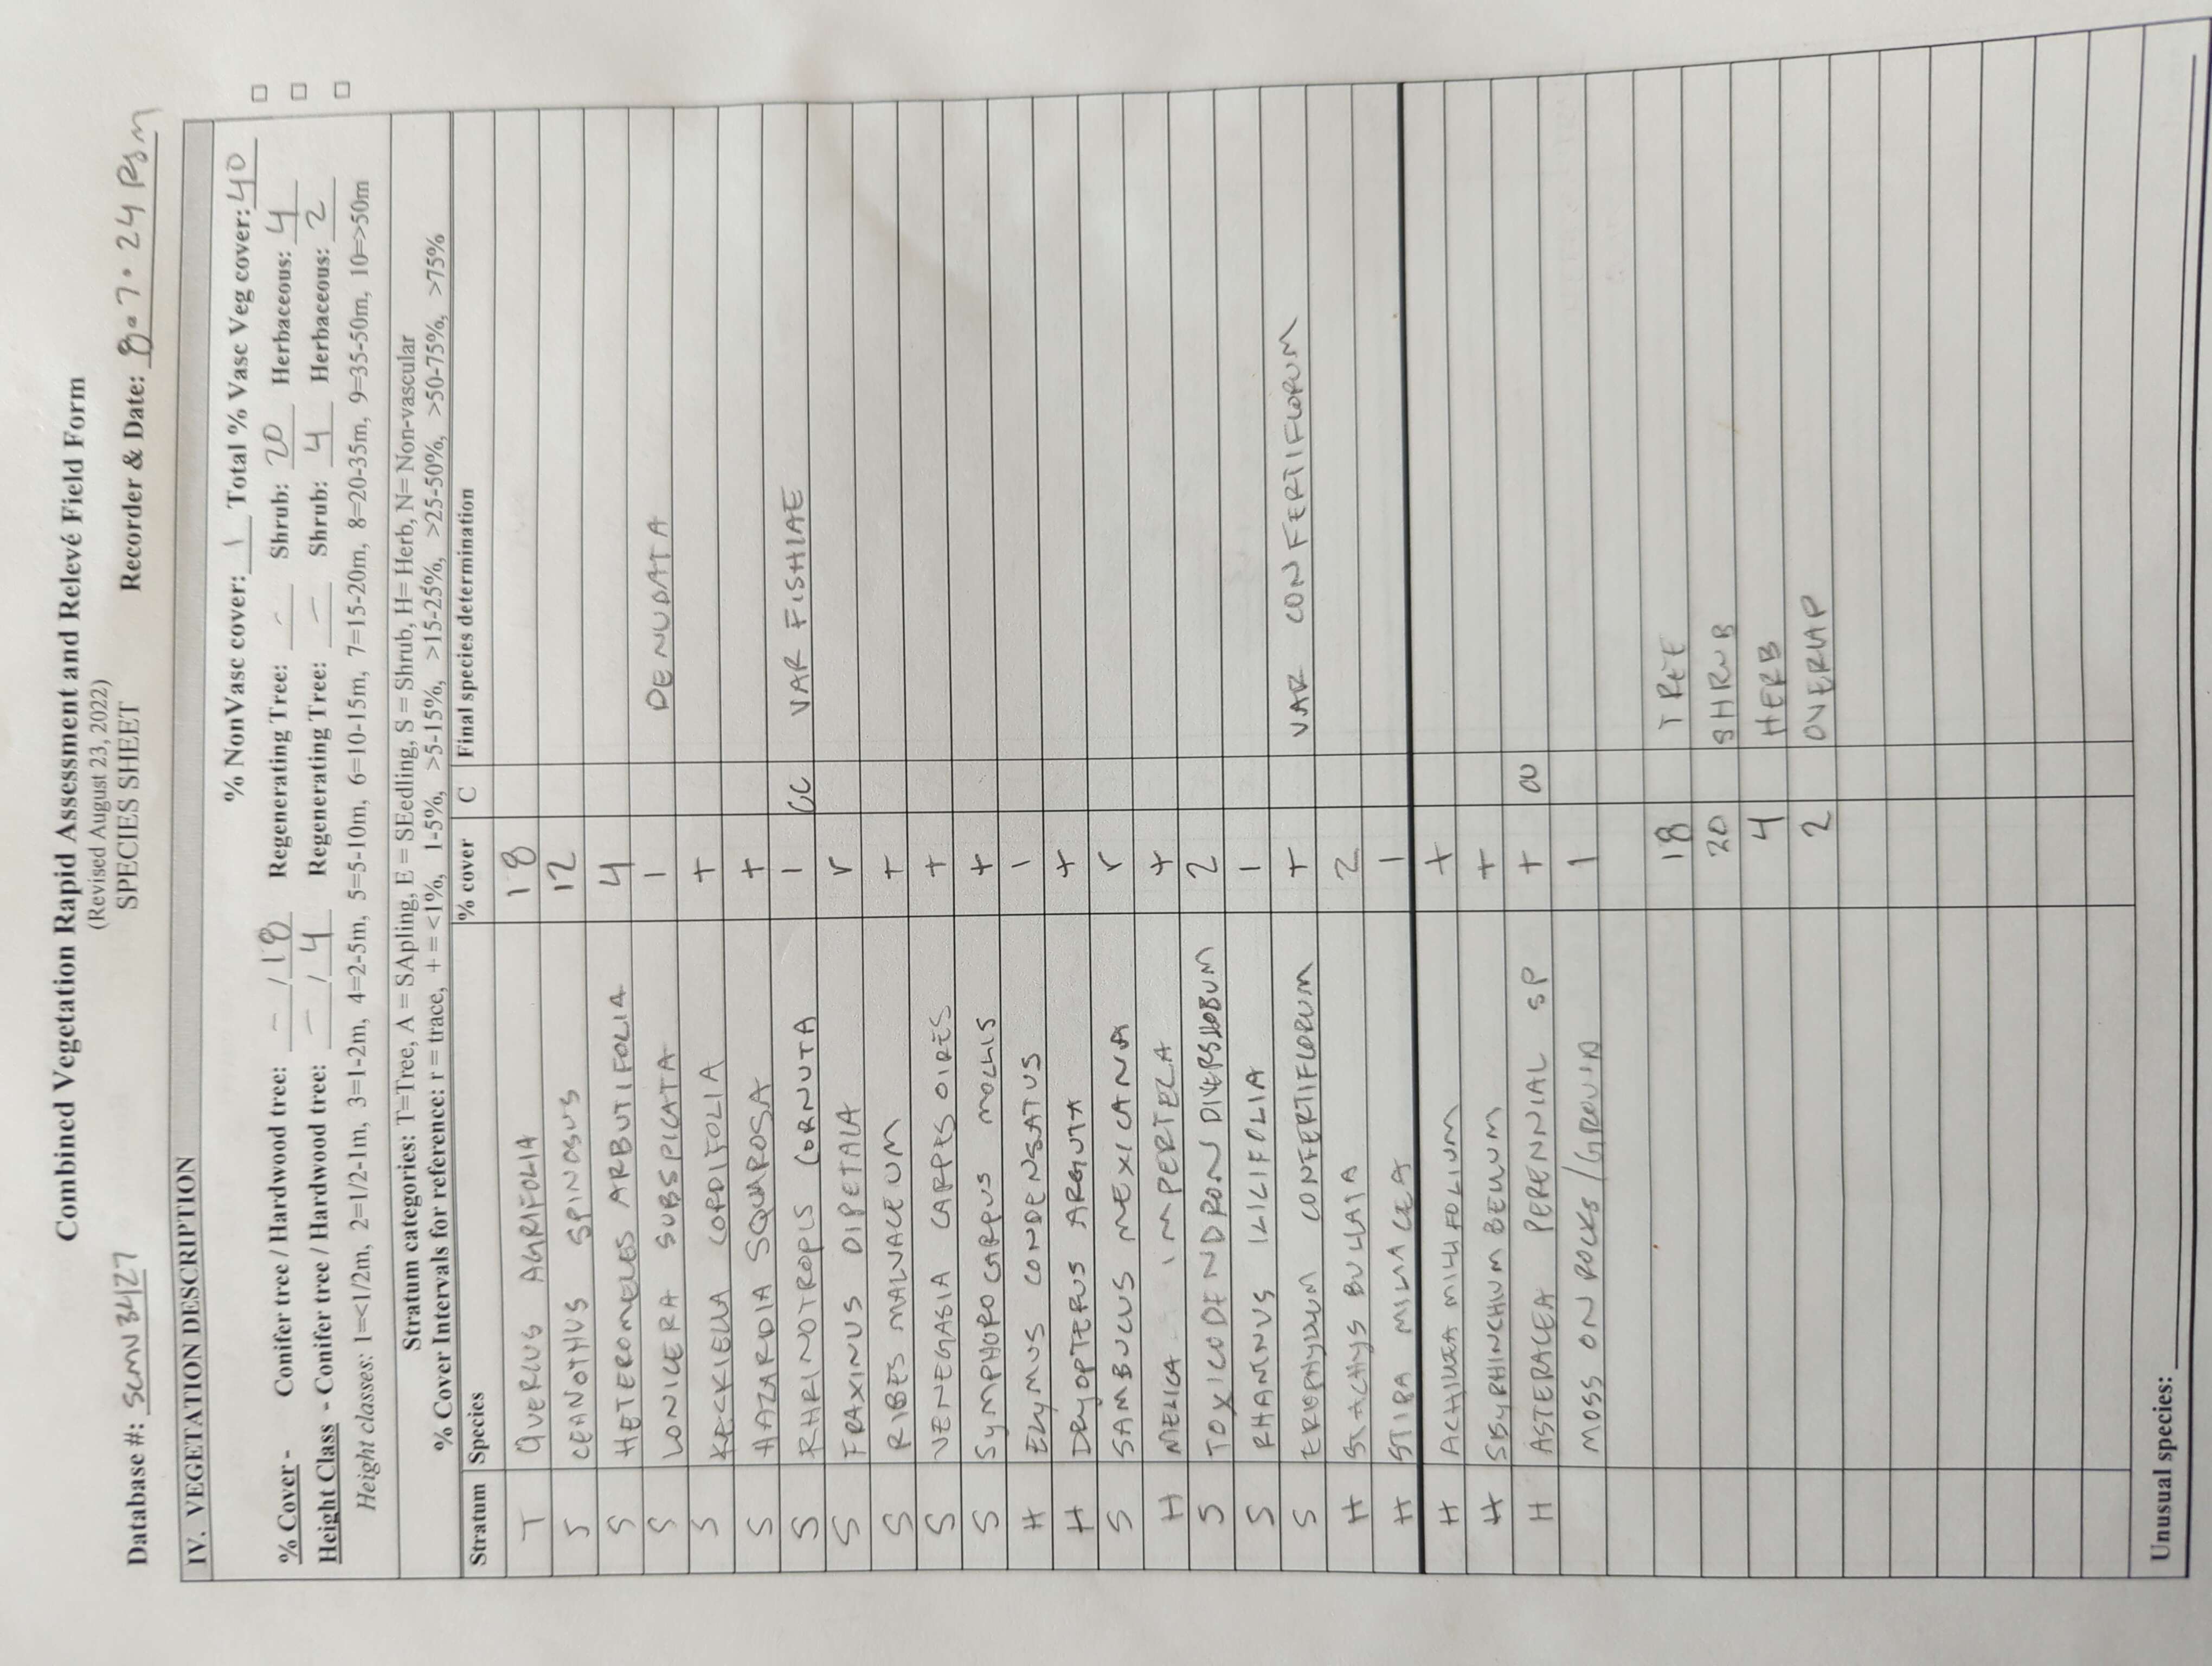 Combined Vegetation Rapid Assessment and Relevé Field Form
(Revised August 23, 2022)
SPECIES SHEET
Database #: SCMN3427 Recorder & Date: 8.7.24 PSM
IV. VEGETATION DESCRIPTION
% NonVasc cover: 1 Total % Vasc Veg cover: 40
% Cover - Conifer tree / Hardwood tree: - / 18 Regenerating Tree: - Shrub: 20 Herbaceous: 4
Height Class - Conifer tree / Hardwood tree: - / 4 Regenerating Tree: - Shrub: 4 Herbaceous: 2
Height classes: 1=<1/2m, 2=1/2-1m, 3=1-2m, 4=2-5m, 5=5-10m, 6=10-15m, 7=15-20m, 8=20-35m, 9=35-50m, 10=>50m
Stratum categories: T=Tree, A = SApling, E = SEedling, S = Shrub, H= Herb, N= Non-vascular
% Cover Intervals for reference: r = trace, + = <1%, 1-5%, >5-15%, >15-25%, >25-50%, >50-75%, >75%
Stratum Species % cover C Final species determination
T QUERCUS AGRIFOLIA 18
S CEANOTHUS SPINOSUS 12
S HETEROMELES ARBUTIFOLIA 4
S LONICERA SUBSPICATA 1 DENUDATA
S KECKIELLA CORDIFOLIA +
S HAZARDIA SQUAROSA +
S RHARINOTROPIS CORNUTA 1 CC VAR FISHIAE
S FRAXINUS DIPETALA r
S RIBES MALVACEUM +
S VENEGASIA CARPESOIDES +
S SYMPHOROCARPUS MOLLIS +
H ELYMUS CONDENSATUS 1
H DRYOPTERUS ARGUTA +
S SAMBUCUS MEXICANA r
H MELICA IMPERFECA +
S TOXICODENDRON DIVERSILOBUM 2
S RHAMNUS ILICIFOLIA 1
S ERIOPHYLLUM CONFERTIFLORUM + VAR CONFERTIFLORUM
H STACHYS BULLATA 2
H STIPA MILIACEA 1
H ACHILLEA MILLIFOLIUM +
H SISYRHINCHIUM BELLUM +
H ASTERACEA PERENNIAL SP +
MOSS ON ROCKS/GROUND 1
18 TREE
20 SHRUB
4 HERB
2 OVERLAP
Unusual species: